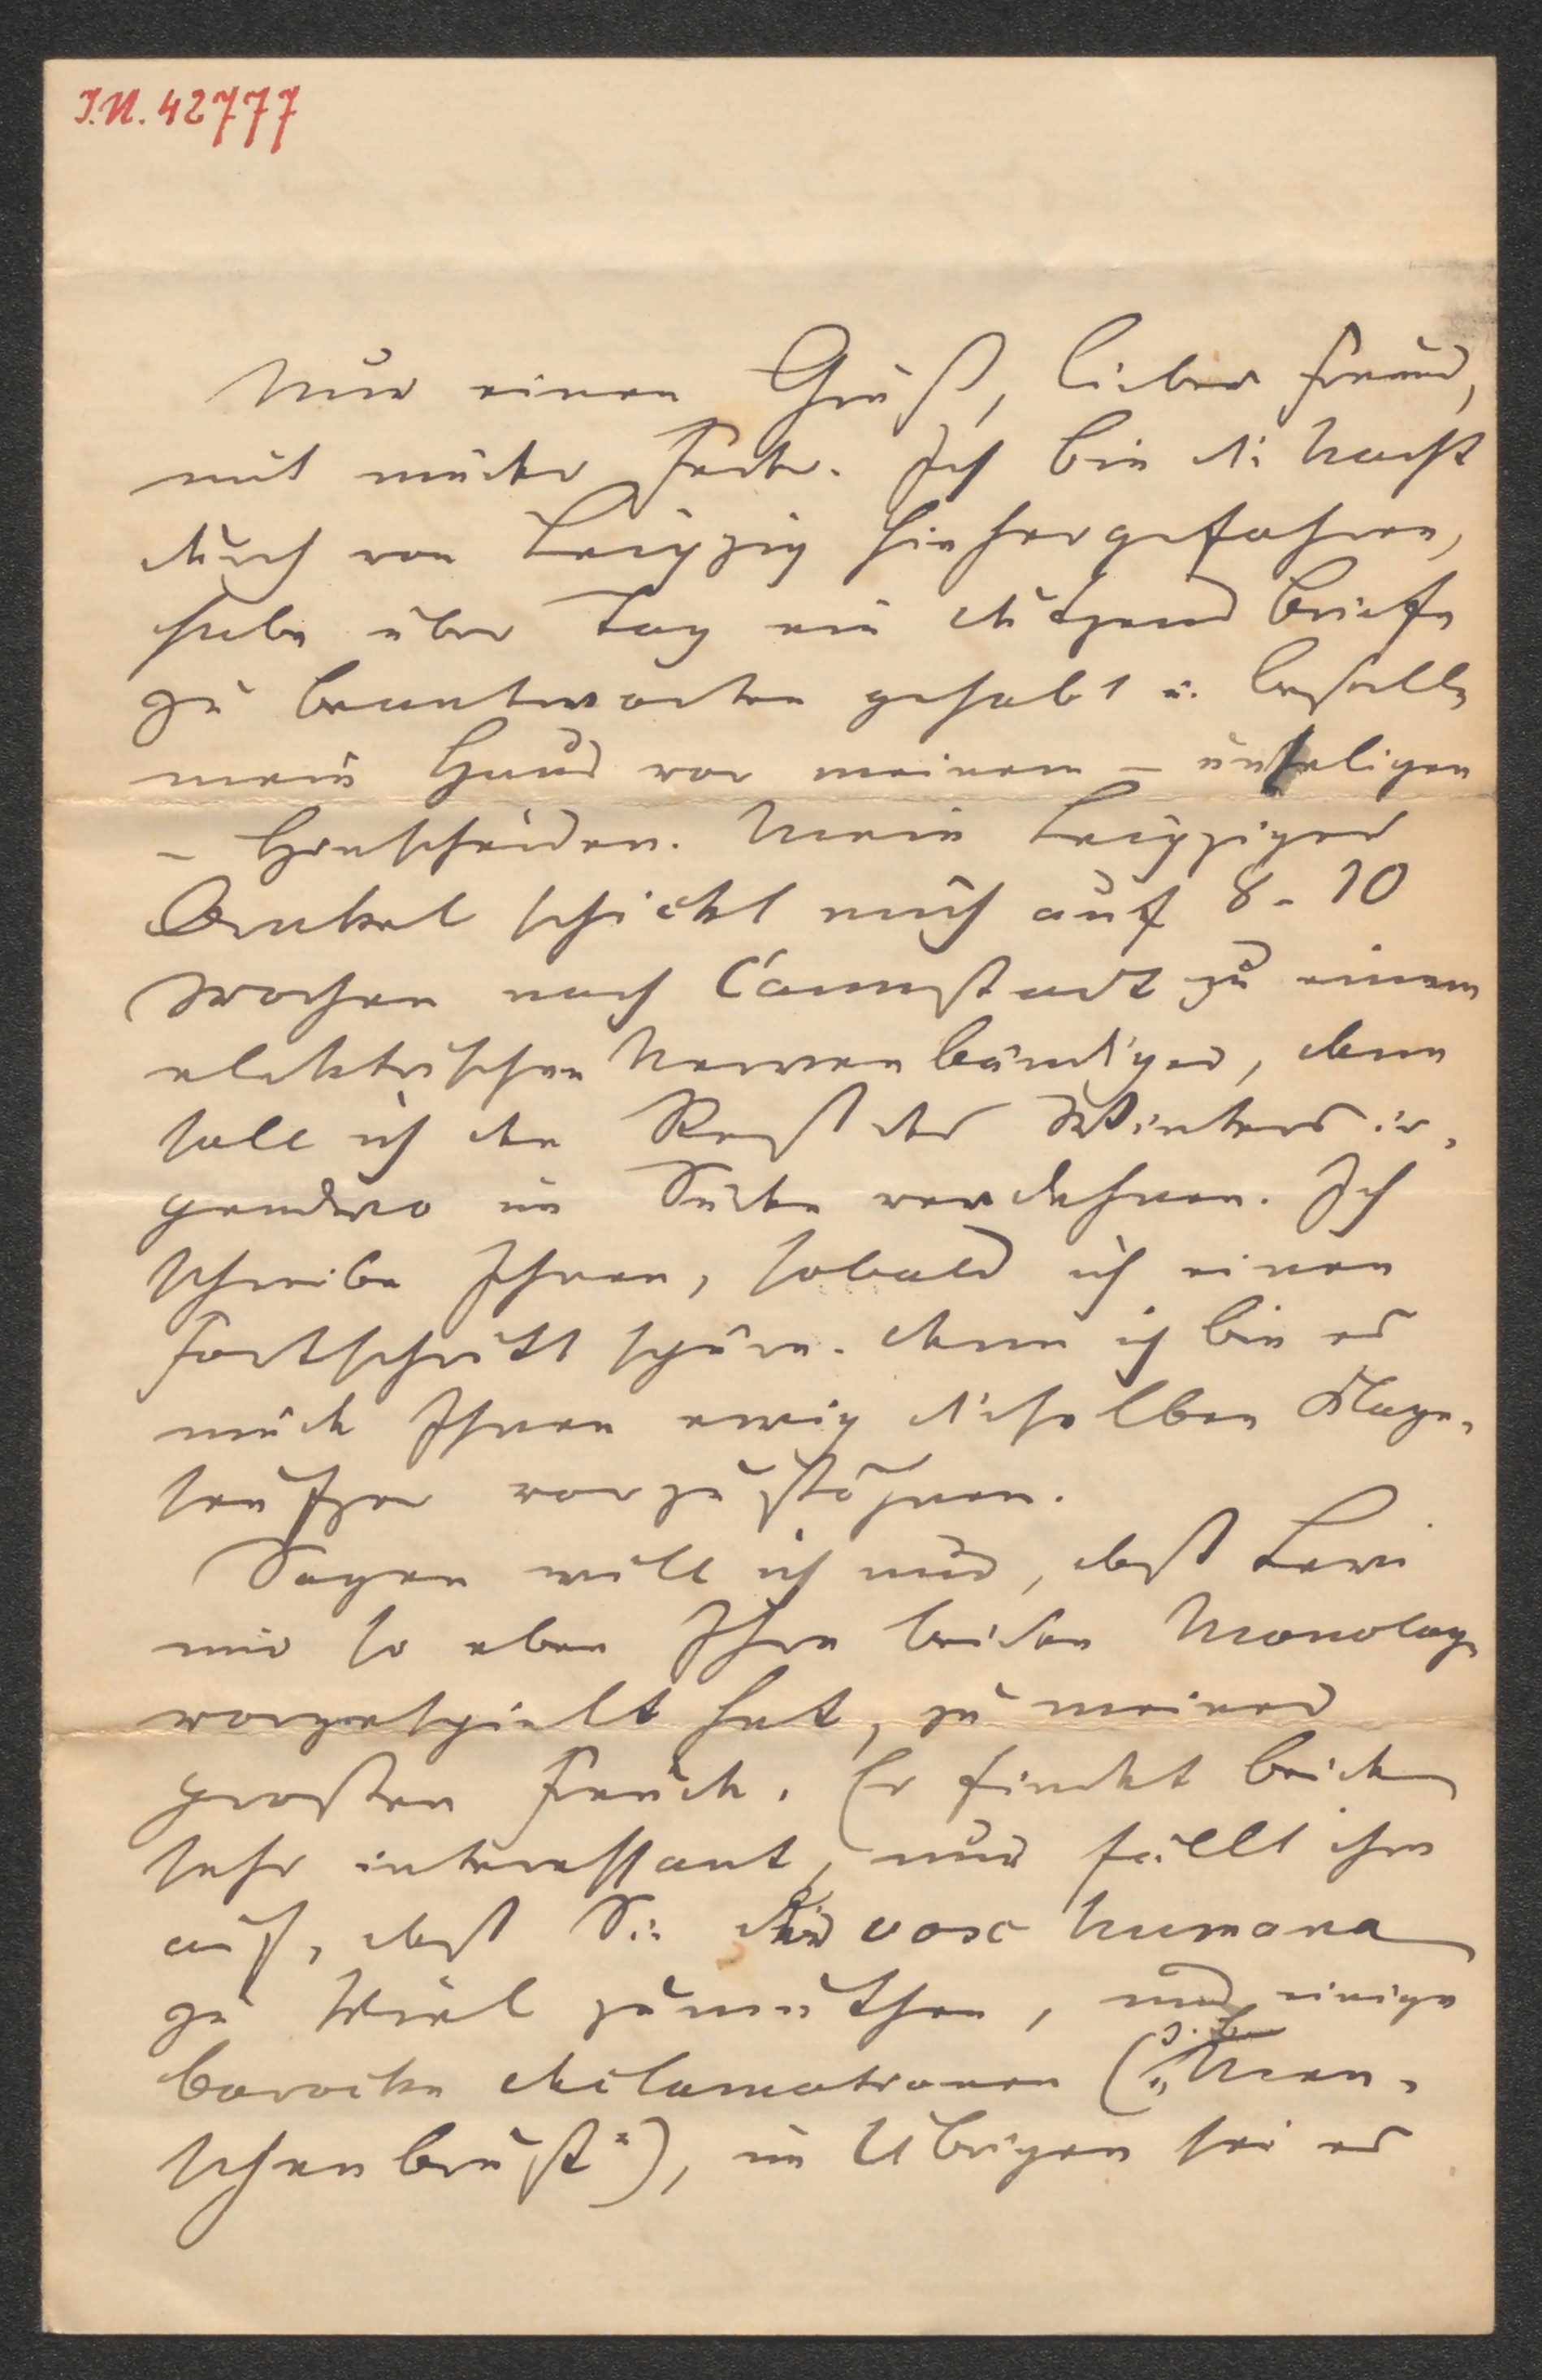 I.N. 42777
Nur einen Gruß, lieber Freund,
mit müder Feder. Ich bin die Nacht
durch von Leipzig hiehergefahren,
habe über Tag ein Dutzend Briefe
zu beantworten gehabt u. bestelle
mein Haus vor meinem – unseligen
– Hinscheiden. Mein Leipziger
Orakel schickt mich auf 8-10
Wochen nach Cannstadt zu einem
elektrischen Nervenbändiger, dann
soll ich den Rest des Winters ir-
gendwo im Süden verdehnen. Ich
schreibe Ihnen, sobald ich einen
Fortschritt spüre. Denn ich bin es
müde Ihnen ewig dieselben Klage-
seufzer vorzustöhnen.
Sagen will ich nur, daß Levi
mir so eben Ihre beiden Monologe
vorgespielt hat, zu meiner
großen Freude. Er findet beide
sehr interessant, nur fällt ihm
auf, daß Sie der vox humana
zu Viel zumuthen, und einige
barocke Deklamationen (z. B. „Men-
schenbrust“), im Übrigen sei es